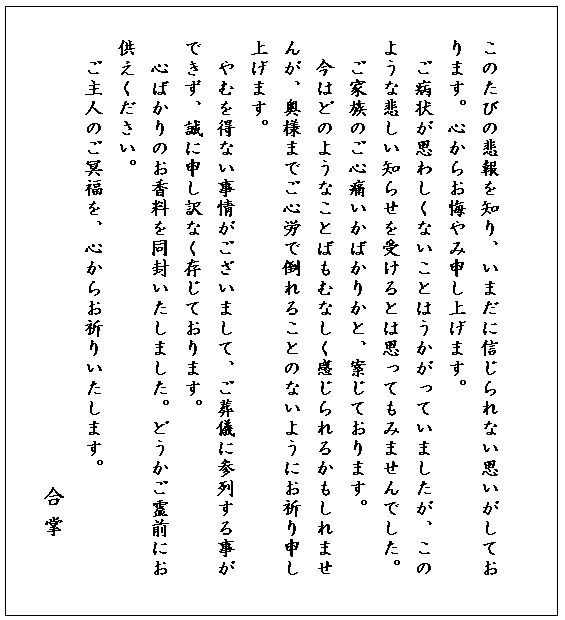 このたびの悲報を知り、いまだに信じられない思いがしてお
ります。心からお悔やみ申し上げます。
ご病状が思わしくないことはうかがっていましたが、この
ような悲しい知らせを受けるとは思ってもみませんでした。
ご家族のご心痛いかばかりかと、案じております。
今はどのようなことばもむなしく感じられるかもしれませ
んが、奥様までご心労で倒れることのないようにお祈り申し
上げます。
やむを得ない事情がございまして、ご葬儀に参列する事が
できず、誠に申し訳なく存じております。
心ばかりのお香料を同封いたしました。どうかご霊前にお
供えください。
ご主人のご冥福を、心からお祈りいたします。
合掌